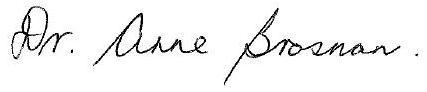 Dr. Anne Brosnan.